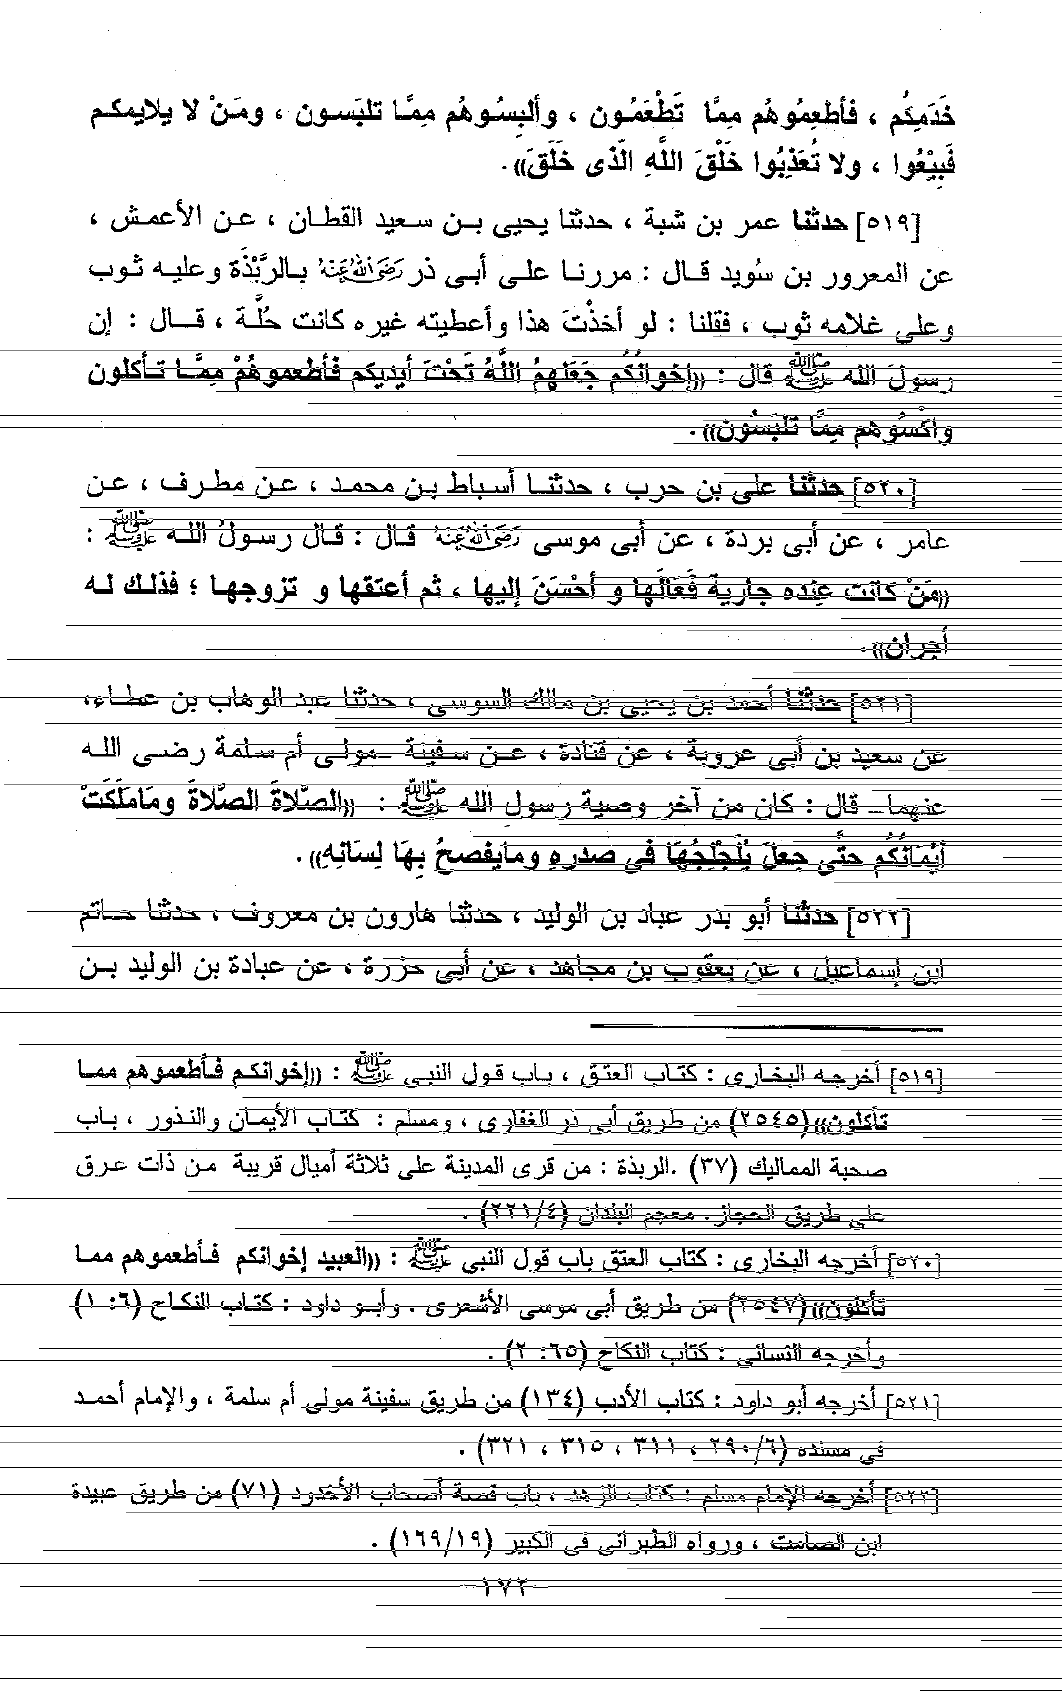 خَدَمِكُم ، فأطعِمُوهُم مِمَّا تَطْعَمُون ، وألبِسُوهُم مِمَّا تلبَسون ، ومَنْ لا يلايمكم
فَبِيْعُوا ، ولا تُعَذِبُوا خَلْقَ اللَّهِ الَّذى خَلَقَ)) .
[٥١٩] حدثنا عمر بن شبة ، حدثنا يحيى بن سعيد القطان ، عن الأعمش ،
عن المعرور بن سُويد قال : مررنا على أبى ذر رَضِيَ اللهُ عَنْهُ بالرَّبْذَة وعليه ثوب
وعلى غلامه ثوب ، فقلنا : لو أخذْتَ هذا وأعطيته غيره كانت حُلَّة ، قال : إن
رسولَ الله ﷺ قال : ((إخوانُكُم جَعَلهمُ اللَّهُ تَحْتَ أيديكم فأطعموهُمْ مِمَّا تأكلون
واكْسُوهم مِمَّا تلبَسُون)) .
[٥٢٠] حدثنا على بن حرب ، حدثنا أسباط بن محمد ، عن مطرف ، عن
عامر ، عن أبى بردة ، عن أبى موسى رَضِيَ اللهُ عَنْهُ قال : قال رسولُ الله ﷺ :
((مَنْ كانت عِنده جارية فَعَالَها و أحْسَنَ إليها ، ثم أعتقها و تزوجها ؛ فذلك له
أجران)).
[٥٢١] حدثنا أحمد بن يحيى بن مالك السوسى ، حدثنا عبد الوهاب بن عطاء،
عن سعيد بن أبى عروبة ، عن قتادة ، عن سفينة -مولى أم سلمة رضى الله
عنهما- قال : كان من آخر وصية رسول الله ﷺ : ((الصَّلاةَ الصَّلاةَ ومَامَلَكَتْ
أيْمَانُكُم حتَّى جعلَ يُلَجْلِجُهَا فى صدرهِ ومايَفصحُ بِهَا لِسَانِهِ)) .
[٥٢٢] حدثنا أبو بدر عباد بن الوليد ، حدثنا هارون بن معروف ، حدثنا حاتم
ابن إسماعيل ، عن يعقوب بن مجاهد ، عن أبى حزرة ، عن عبادة بن الوليد بن
[٥١٩] أخرجه البخارى : كتاب العتق ، باب قول النبى ﷺ : ((إخوانكم فأطعموهم مما
تأكلون)) (٢٥٤٥) من طريق أبى ذر الغفارى ، ومسلم : كتاب الأيمان والنذور ، باب
صحبة المماليك (٣٧) .الربذة : من قرى المدينة على ثلاثة أميال قريبة من ذات عرق
على طريق الحجاز. معجم البلدان (٢٢١/٤) .
[٥٢٠] أخرجه البخارى : كتاب العتق باب قول النبى ﷺ : ((العبيد إخوانكم فأطعموهم مما
تأكلون)) (٢٥٤٧) من طريق أبى موسى الأشعرى . وأبو داود : كتاب النكاح (٦: ١)
وأخرجه النسائى : كتاب النكاح (٦٥: ٢) .
[٥٢١] أخرجه أبو داود : كتاب الأدب (١٣٤) من طريق سفينة مولى أم سلمة ، والإمام أحمد
فى مسنده (٢٩٠/٦ ، ٣١١ ، ٣١٥ ، ٣٢١) .
[٥٢٢] أخرجه الإمام مسلم : كتاب الزهد ، باب قصة أصحاب الأخدود (٧١) من طريق عبيدة
ابن الصامت ، ورواه الطبرانى فى الكبير (١٦٩/١٩) .
-١٧٢-